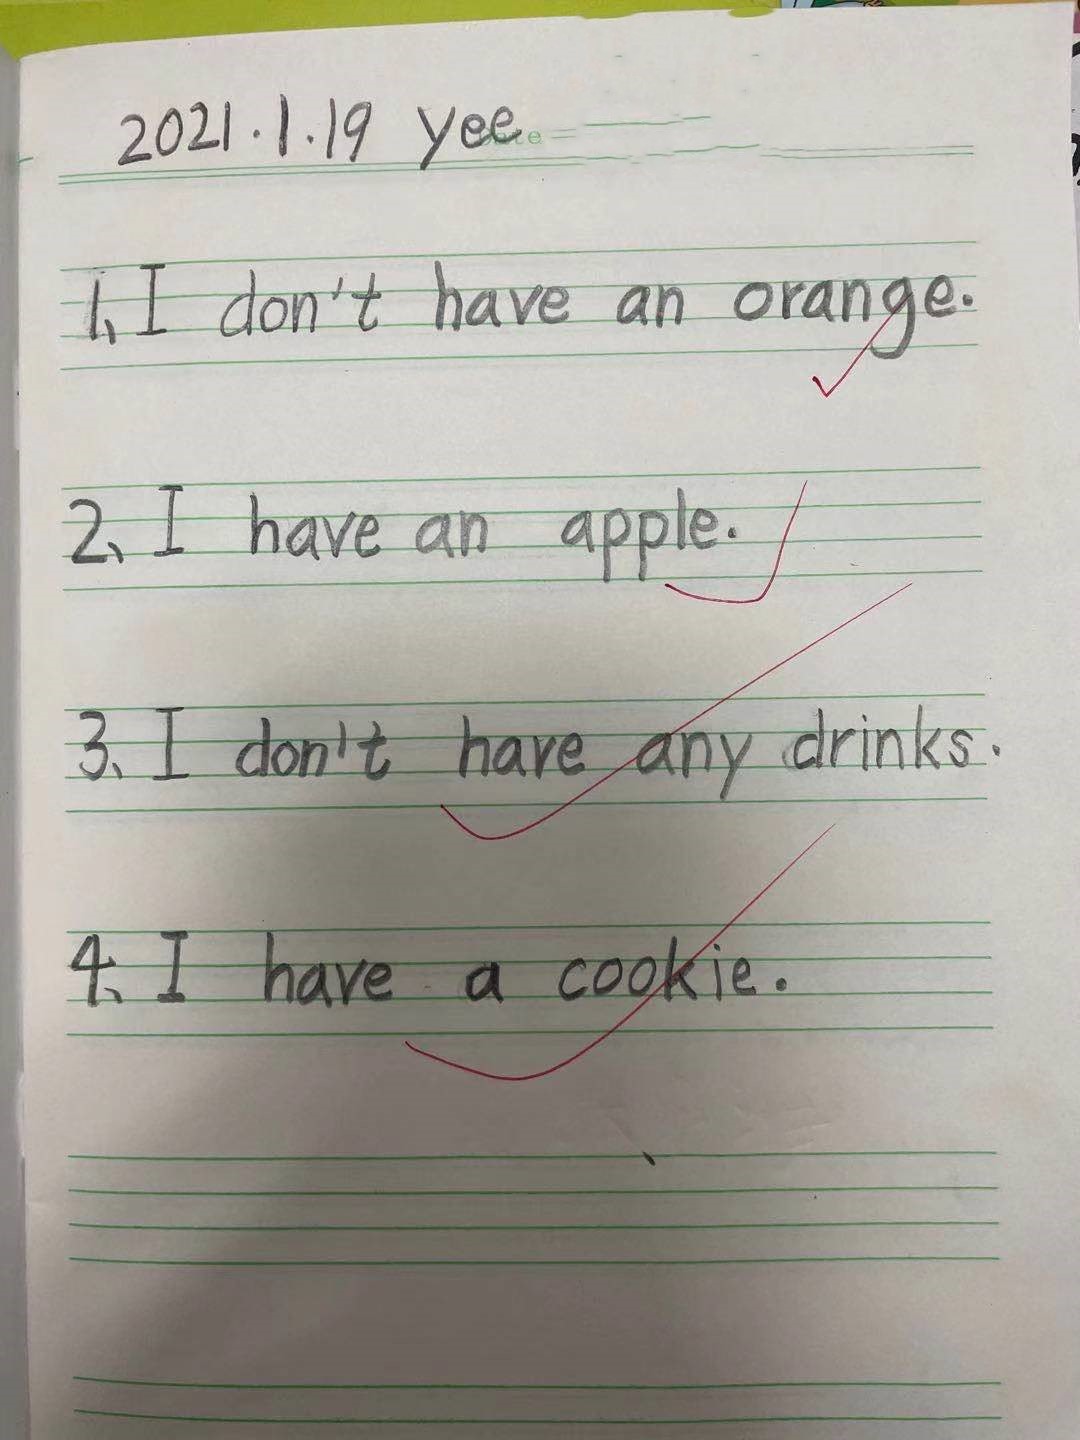 2021.1.19 yee
1、I don't have an orange.
2、I have an apple.
3、I don't have any drinks.
4、I have a cookie.